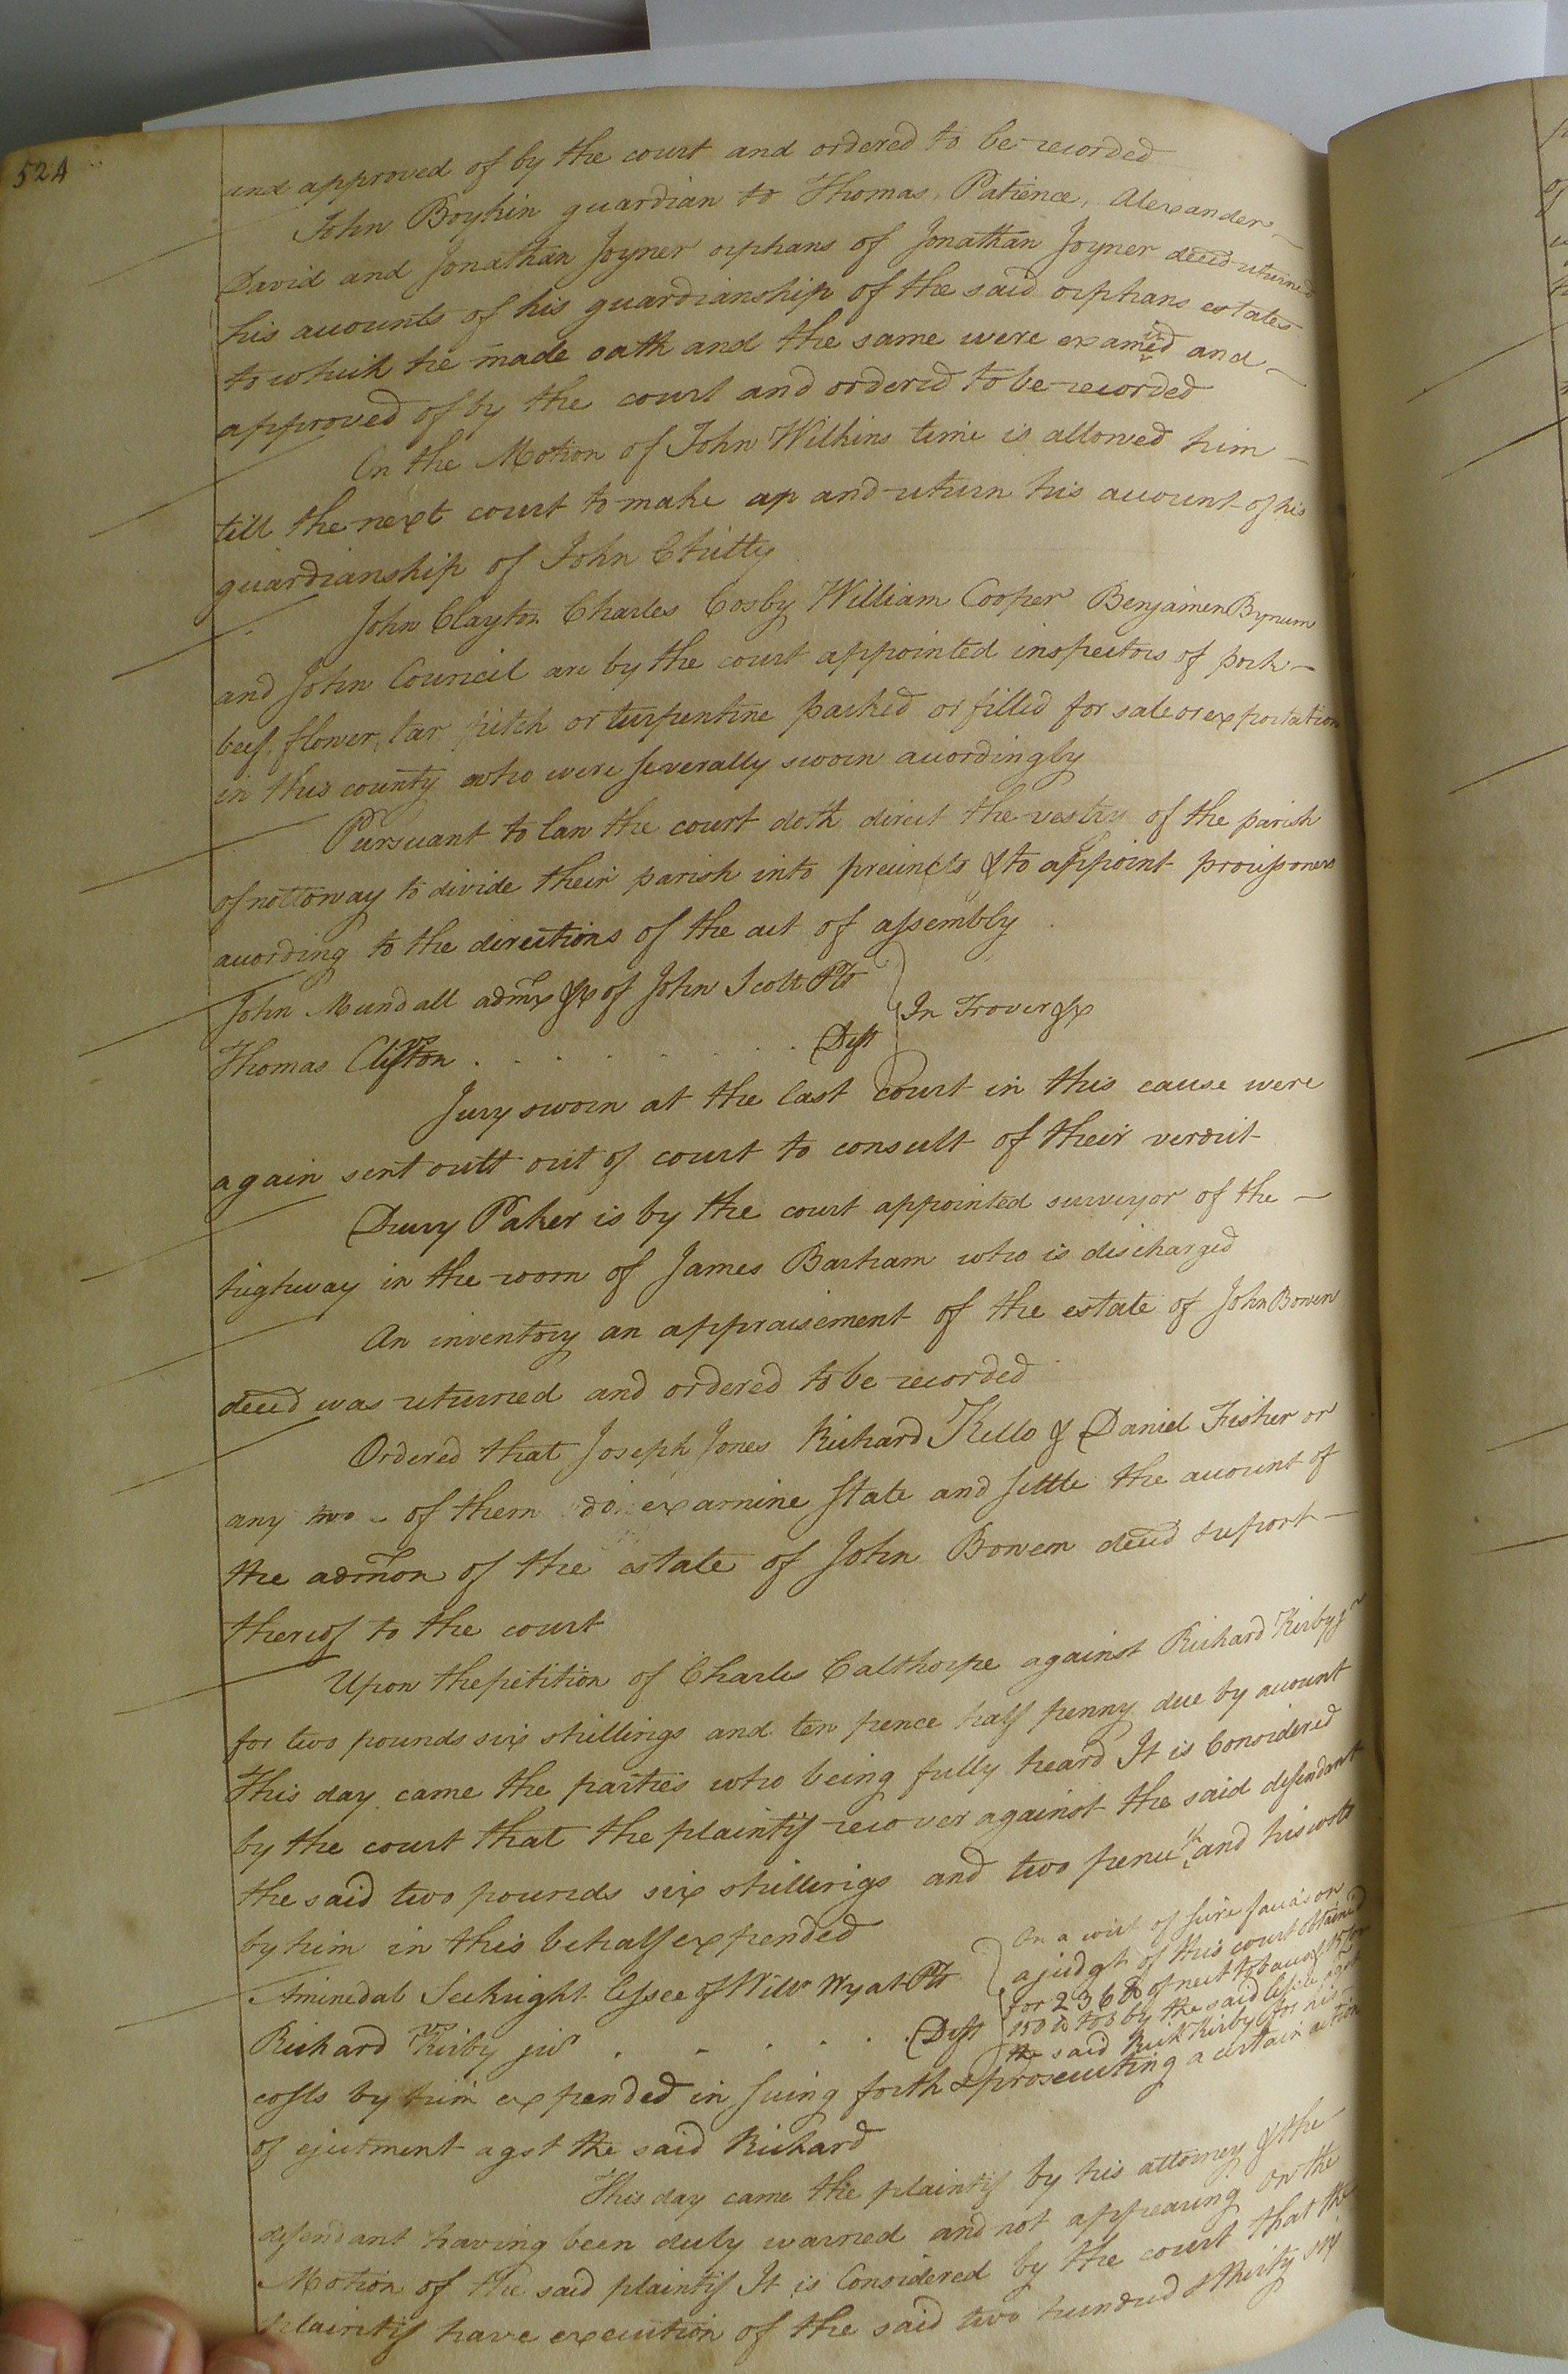 524
and approved of by the court and ordered to be recorded
John Boykin guardian to Thomas, Patience, Alexander
David and Jonathan Joyner orphans of Jonathan Joyner decēd returned
his accounts of his guardianship of the said orphans estates
to which he made oath and the same were examined and
approved of by the court and ordered to be recorded
On the Motion of John Wilkins time is allowed him
till the next court to make up and return his account of his
guardianship of John Chitty
John Clayton Charles Cosby William Cooper Benjamen Bynum
and John Council are by the court appointed inspectors of pork
beef, flower, tar pitch or turpentine packed or filled for sale or exportation
in this county who were severally sworn accordingly
Pursuant to law the court doth direct the vestry of the parish
of nottoway to divide their parish into precincts & to appoint
according to the directions of the act of assembly
John Mundall admr &c of John Scott Plt
In Trover &c
Thomas Clifton Deft
Jury sworn at the last court in this cause were
again sent outt out of court to consult of their verdict
Drury Paker is by the court appointed surveyor of the
highway in the room of James Barham who is discharged
An inventory an appraisement of the estate of John Bowen
decēd was returned and ordered to be recorded
Ordered that Joseph Jones Richard Kello & Daniel Fisher or
any two of them do examine state and settle the account of
the admon of the estate of John Bowen decēd & report
thereof to the court
Upon the petition of Charles Calthorpe against Richard Kirby jr
for two pounds six shillings and ten pence half penny due by account
This day came the parties who being fully heard It is Considered
by the court that the plaintif recover against the said defendant
the said two pounds six shillings and two pence and his costs
by him in this behalf expended
Aminedab Seekright lessee of Will Wyat Plt
vs
Richard Kirby jur Deft
On a writ of scire facias on
a judgt of this court obtained
for 236 lb of nett tobacco & 15/ or
150 lb tob by the said lessee agst
the said Rich Kirby for his
costs by him expended in suing forth & prosecuting a certain action
of ejectment agst the said Richard
This day came the plaintif by his attorney & the
defendant having been duly warned and not appearing On the
Motion of the said plaintif It is Considered by the court that the
plaintif have execution of the said two hundred & thirty six